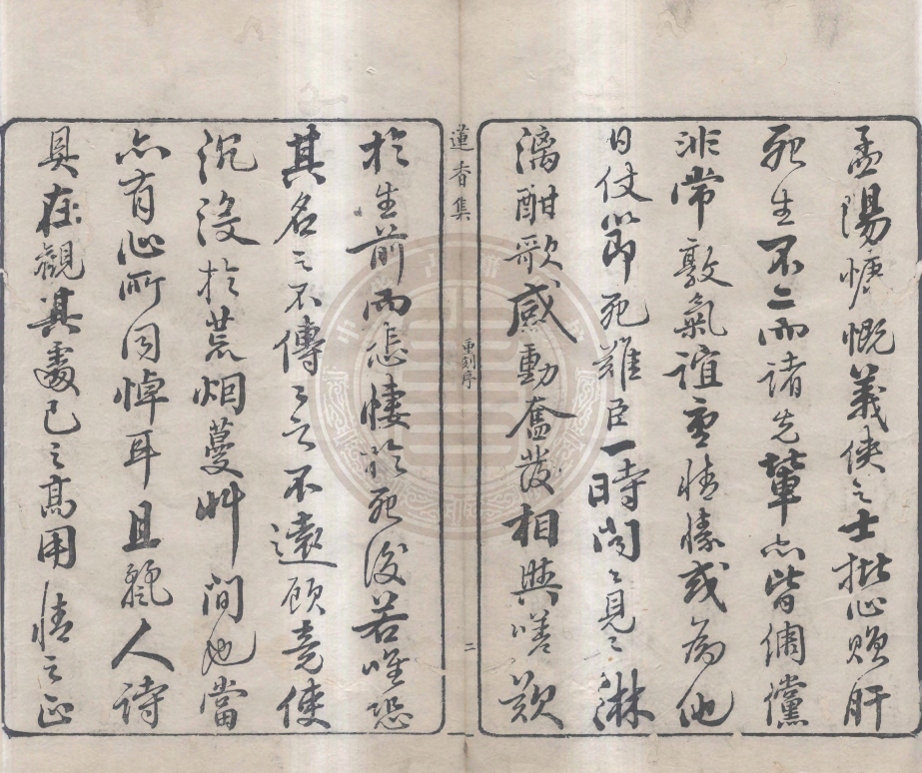 孟陽慷慨義俠之士批心賭肝
死生不二而諸先輩亦皆倜儻
非常敦氣誼重情愫或為他
日仗節死難臣一時聞之見之淋
漓酣歌感動奮發相與嗟歎
蓮香集
重刻序
二
於生前而悲悽於死後若唯恐
其名之不傳之不遠顧竟使
沉沒於荒烟蔓艸間也當
亦有心所同悼耳且麗人詩
具在觀其處己之高用情之正